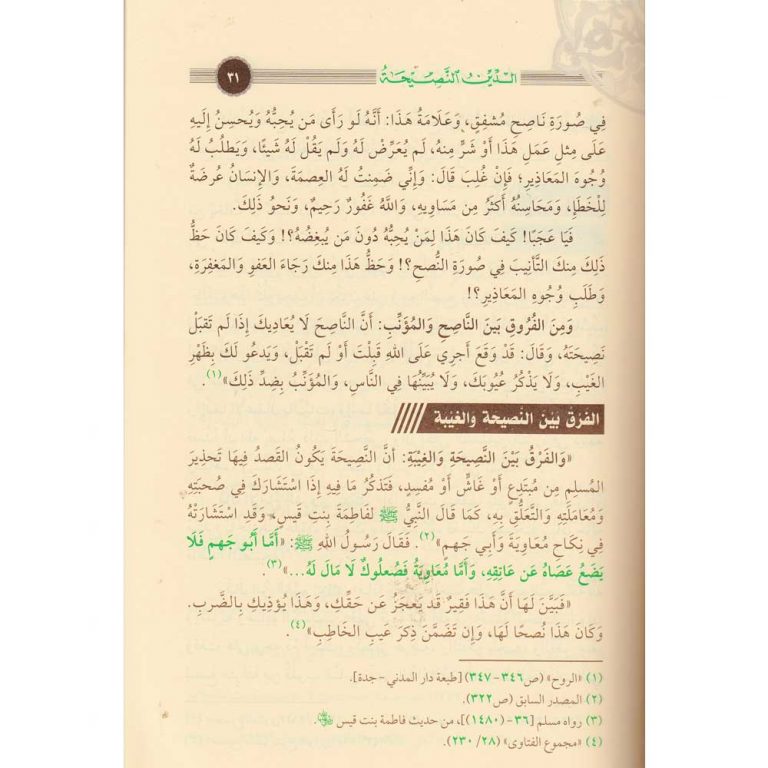 الدين النصيحة
٣١
فِي صُورَةِ نَاصِحٍ مُشفِقٍ، وَعَلَامَةُ هَذَا: أَنَّهُ لَو رَأَى مَن يُحِبُّهُ وَيُحسِنُ إِلَيهِ
عَلَى مِثلِ عَمَلِ هَذَا أَوْ شَرٍّ مِنهُ، لَم يُعَرِّض لَهُ وَلَم يَقُلْ لَهُ شَيئًا، وَيَطلُبُ لَهُ
وُجُوهَ المَعَاذِيرِ؛ فَإِنْ غُلِبَ قَالَ: وَإِنِّي ضَمِنتُ لَهُ العِصمَةَ، وَالإِنسَانُ عُرضَةٌ
لِلْخَطَإِ، وَمَحَاسِنُهُ أَكثَرُ مِن مَسَاوِيهِ، وَاللَّهُ غَفُورٌ رَحِيمٌ، وَنَحوُ ذَلِكَ.
فَيَا عَجَبًا! كَيفَ كَانَ هَذَا لِمَنْ يُحِبُّهُ دُونَ مَن يُبغِضُهُ؟! وَكَيفَ كَانَ حَظُّ
ذَلِكَ مِنكَ التَّأنِيبَ فِي صُورَةِ النُّصحِ؟! وَحَظُّ هَذَا مِنكَ رَجَاءَ العَفوِ وَالمَغفِرَةِ،
وَطَلَبِ وُجُوهِ المَعَاذِيرِ؟!
وَمِنَ الفُرُوقِ بَينَ النَّاصِحِ وَالمُؤَنِّبِ: أَنَّ النَّاصِحَ لَا يُعَادِيكَ إِذَا لَم تَقبَلْ
نَصِيحَتَهُ، وَقَالَ: قَدْ وَقَعَ أَجرِي عَلَى اللهِ قَبِلْتَ أَوْ لَم تَقْبَلْ، وَيَدعُو لَكَ بِظَهْرِ
الغَيْبِ، وَلَا يَذْكُرُ عُيُوبَكَ، وَلَا يُبَيِّنُهَا فِي النَّاسِ، وَالمُؤَنِّبُ بِضِدِّ ذَلِكَ»(١).
الفَرْقُ بَيْنَ النَّصِيحَةِ والغِيْبَةِ
«وَالفَرْقُ بَيْنَ النَّصِيحَةِ وَالغِيْبَةِ: أنَّ النَّصِيحَةَ يَكُونُ القَصدُ فِيهَا تَحذِيرَ
المُسلِمِ مِن مُبتَدِعٍ أَو غَاشٍّ أَو مُفسِدٍ، فَتَذكُرُ مَا فِيهِ إِذَا استَشَارَكَ فِي صُحبَتِهِ
وَمُعَامَلَتِهِ وَالتَّعَلُّقِ بِهِ، كَمَا قَالَ النَّبِيُّ ﷺ لفَاطِمَةَ بِنتِ قَيسٍ، وَقَدِ استَشَارَتهُ
فِي نِكَاحِ مُعَاوِيَةَ وَأَبِي جَهمٍ»(٢). فَقَالَ رَسُولُ اللهِ ﷺ: «أَمَّا أَبُو جَهمٍ فَلَا
يَضَعُ عَصَاهُ عَن عَاتِقِهِ، وَأَمَّا مُعَاوِيَةُ فَصُعلُوكٌ لَا مَالَ لَهُ...»(٣).
«فَبَيَّنَ لَهَا أَنَّ هَذَا فَقِيرٌ قَد يَعجَزُ عَن حَقِّكِ، وَهَذَا يُؤذِيكِ بِالضَّربِ.
وَكَانَ هَذَا نُصحًا لَهَا، وَإِن تَضَمَّنَ ذِكرَ عَيبِ الخَاطِبِ»(٤).
(١) «الروح» (ص٣٤٦-٣٤٧) [طبعة دار المدني-جدة].
(٢) المصدر السابق (ص٣٢٢).
(٣) رواه مسلم [٣٦-(١٤٨٠)]، من حديث فاطمة بنت قيس
(٤) «مجموع الفتاوى» (٢٨/ ٢٣٠).